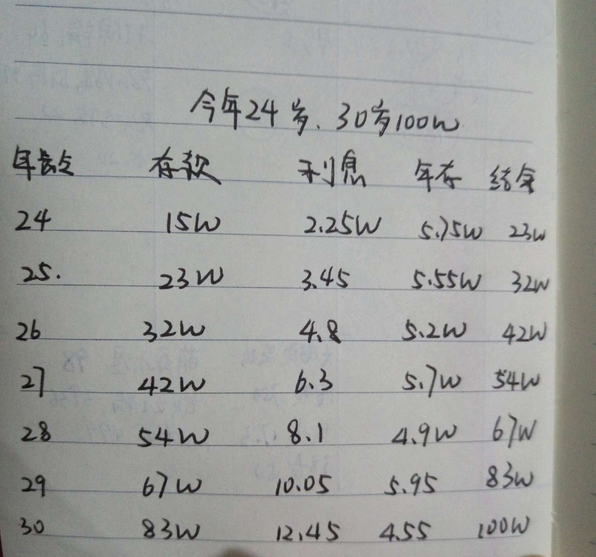 今年24岁、30岁100W
年龄 存款 利息 年存 结余
24 15W 2.25W 5.75W 23W
25. 23W 3.45 5.55W 32W
26 32W 4.8 5.2W 42W
27 42W 6.3 5.7W 54W
28 54W 8.1 4.9W 67W
29 67W 10.05 5.95 83W
30 83W 12.45 4.55 100W